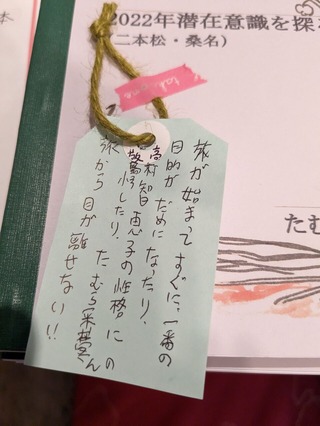 本
2022年潜在意識を探
（二本松・桑名）
takigare
旅が始まってすぐに、一番の
目的が だめに なったり、
高村智恵子の性格に
驚愕したり、
たむら家夢さんの
旅から 目が離せない!!
たむ